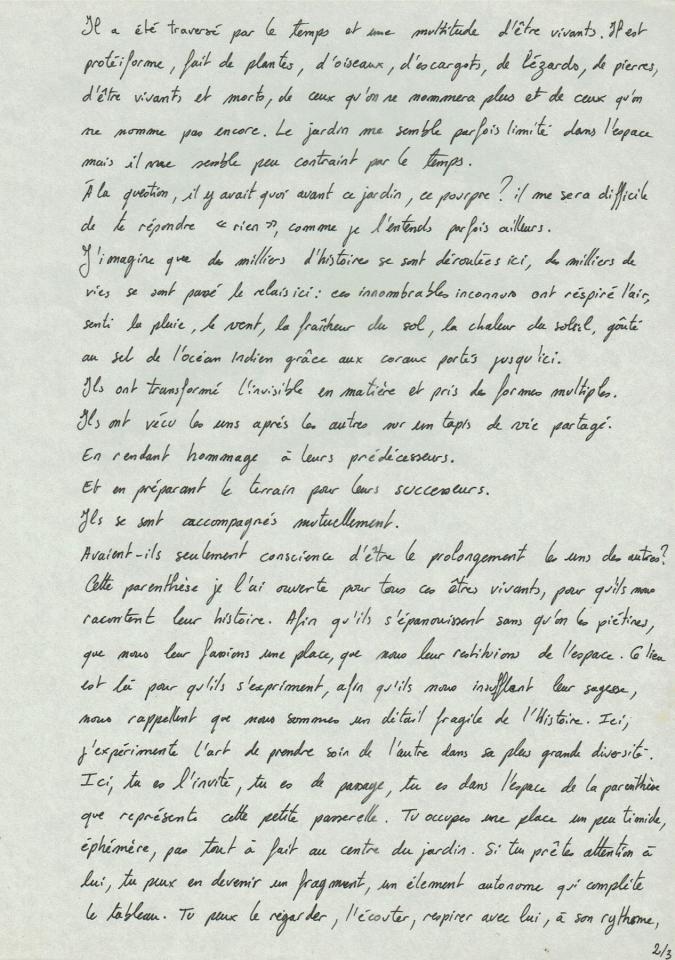 Il a été traversé par le temps et une multitude d'être vivants. Il est
protéiforme, fait de plantes, d'oiseaux, d'escargots, de lézards, de pierres,
d'être vivants et morts, de ceux qu'on ne nommera plus et de ceux qu'on
ne nomme pas encore. Le jardin me semble parfois limité dans l'espace
mais il me semble peu contraint par le temps.
À la question, il y avait quoi avant ce jardin, ce pourpre ? il me sera difficile
de te répondre « rien », comme je l'entends parfois ailleurs.
J'imagine que des milliers d'histoires se sont déroutées ici, des milliers de
vies se sont passé le relais ici : ces innombrables inconnus ont réspiré l'air,
senti la pluie, le vent, la fraîcheur du sol, la chaleur du soleil, goûté
au sel de l'océan Indien grâce aux coraux portés jusqu'ici.
Ils ont transformé l'invisible en matière et pris des formes multiples.
Ils ont vécu les uns aprés les autres sur un tapis de vie partagé.
En rendant hommage à leurs prédécesseurs.
Et en préparant le terrain pour leurs successeurs.
Ils se sont accompagnés mutuellement.
Avaient-ils seulement conscience d'être le prolongement les uns des autres ?
Cette parenthèse je l'ai ouverte pour tous ces êtres vivants, pour qu'ils nous
racontent leur histoire. Afin qu'ils s'épanouissent sans qu'on les piétines,
que nous leur fassions une place, que nous leur restituions de l'espace. Ce lieu
est là pour qu'ils s'expriment, afin qu'ils nous insufflent leur sagesse,
nous rappellent que nous sommes un détail fragile de l'Histoire. Ici,
j'expérimente l'art de prendre soin de l'autre dans sa plus grande diversité.
Ici, tu es l'invité, tu es de passage, tu es dans l'espace de la parenthèse
que représente cette petite passerelle. Tu occupes une place un peu timide,
éphémère, pas tout à fait au centre du jardin. Si tu prêtes attention à
lui, tu peux en devenir un fragment, un élement autonome qui complète
le tableau. Tu peux le regarder, l'écouter, respirer avec lui, à son rythme,
2/3